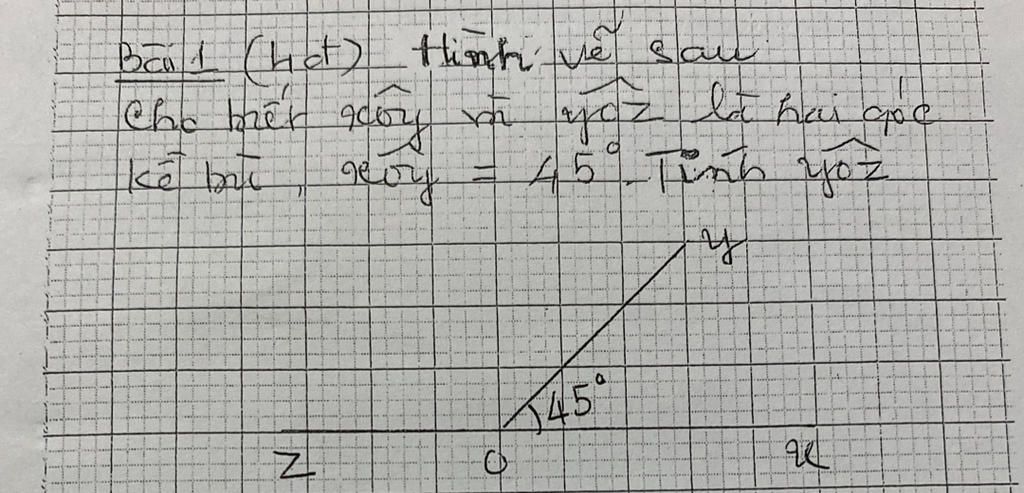 Bài 1 (hđt) Hình vẽ sau
Cho biết xOy và yOz là hai góc
kề bù, xOy = 45°. Tính yOz
y
45°
z O x